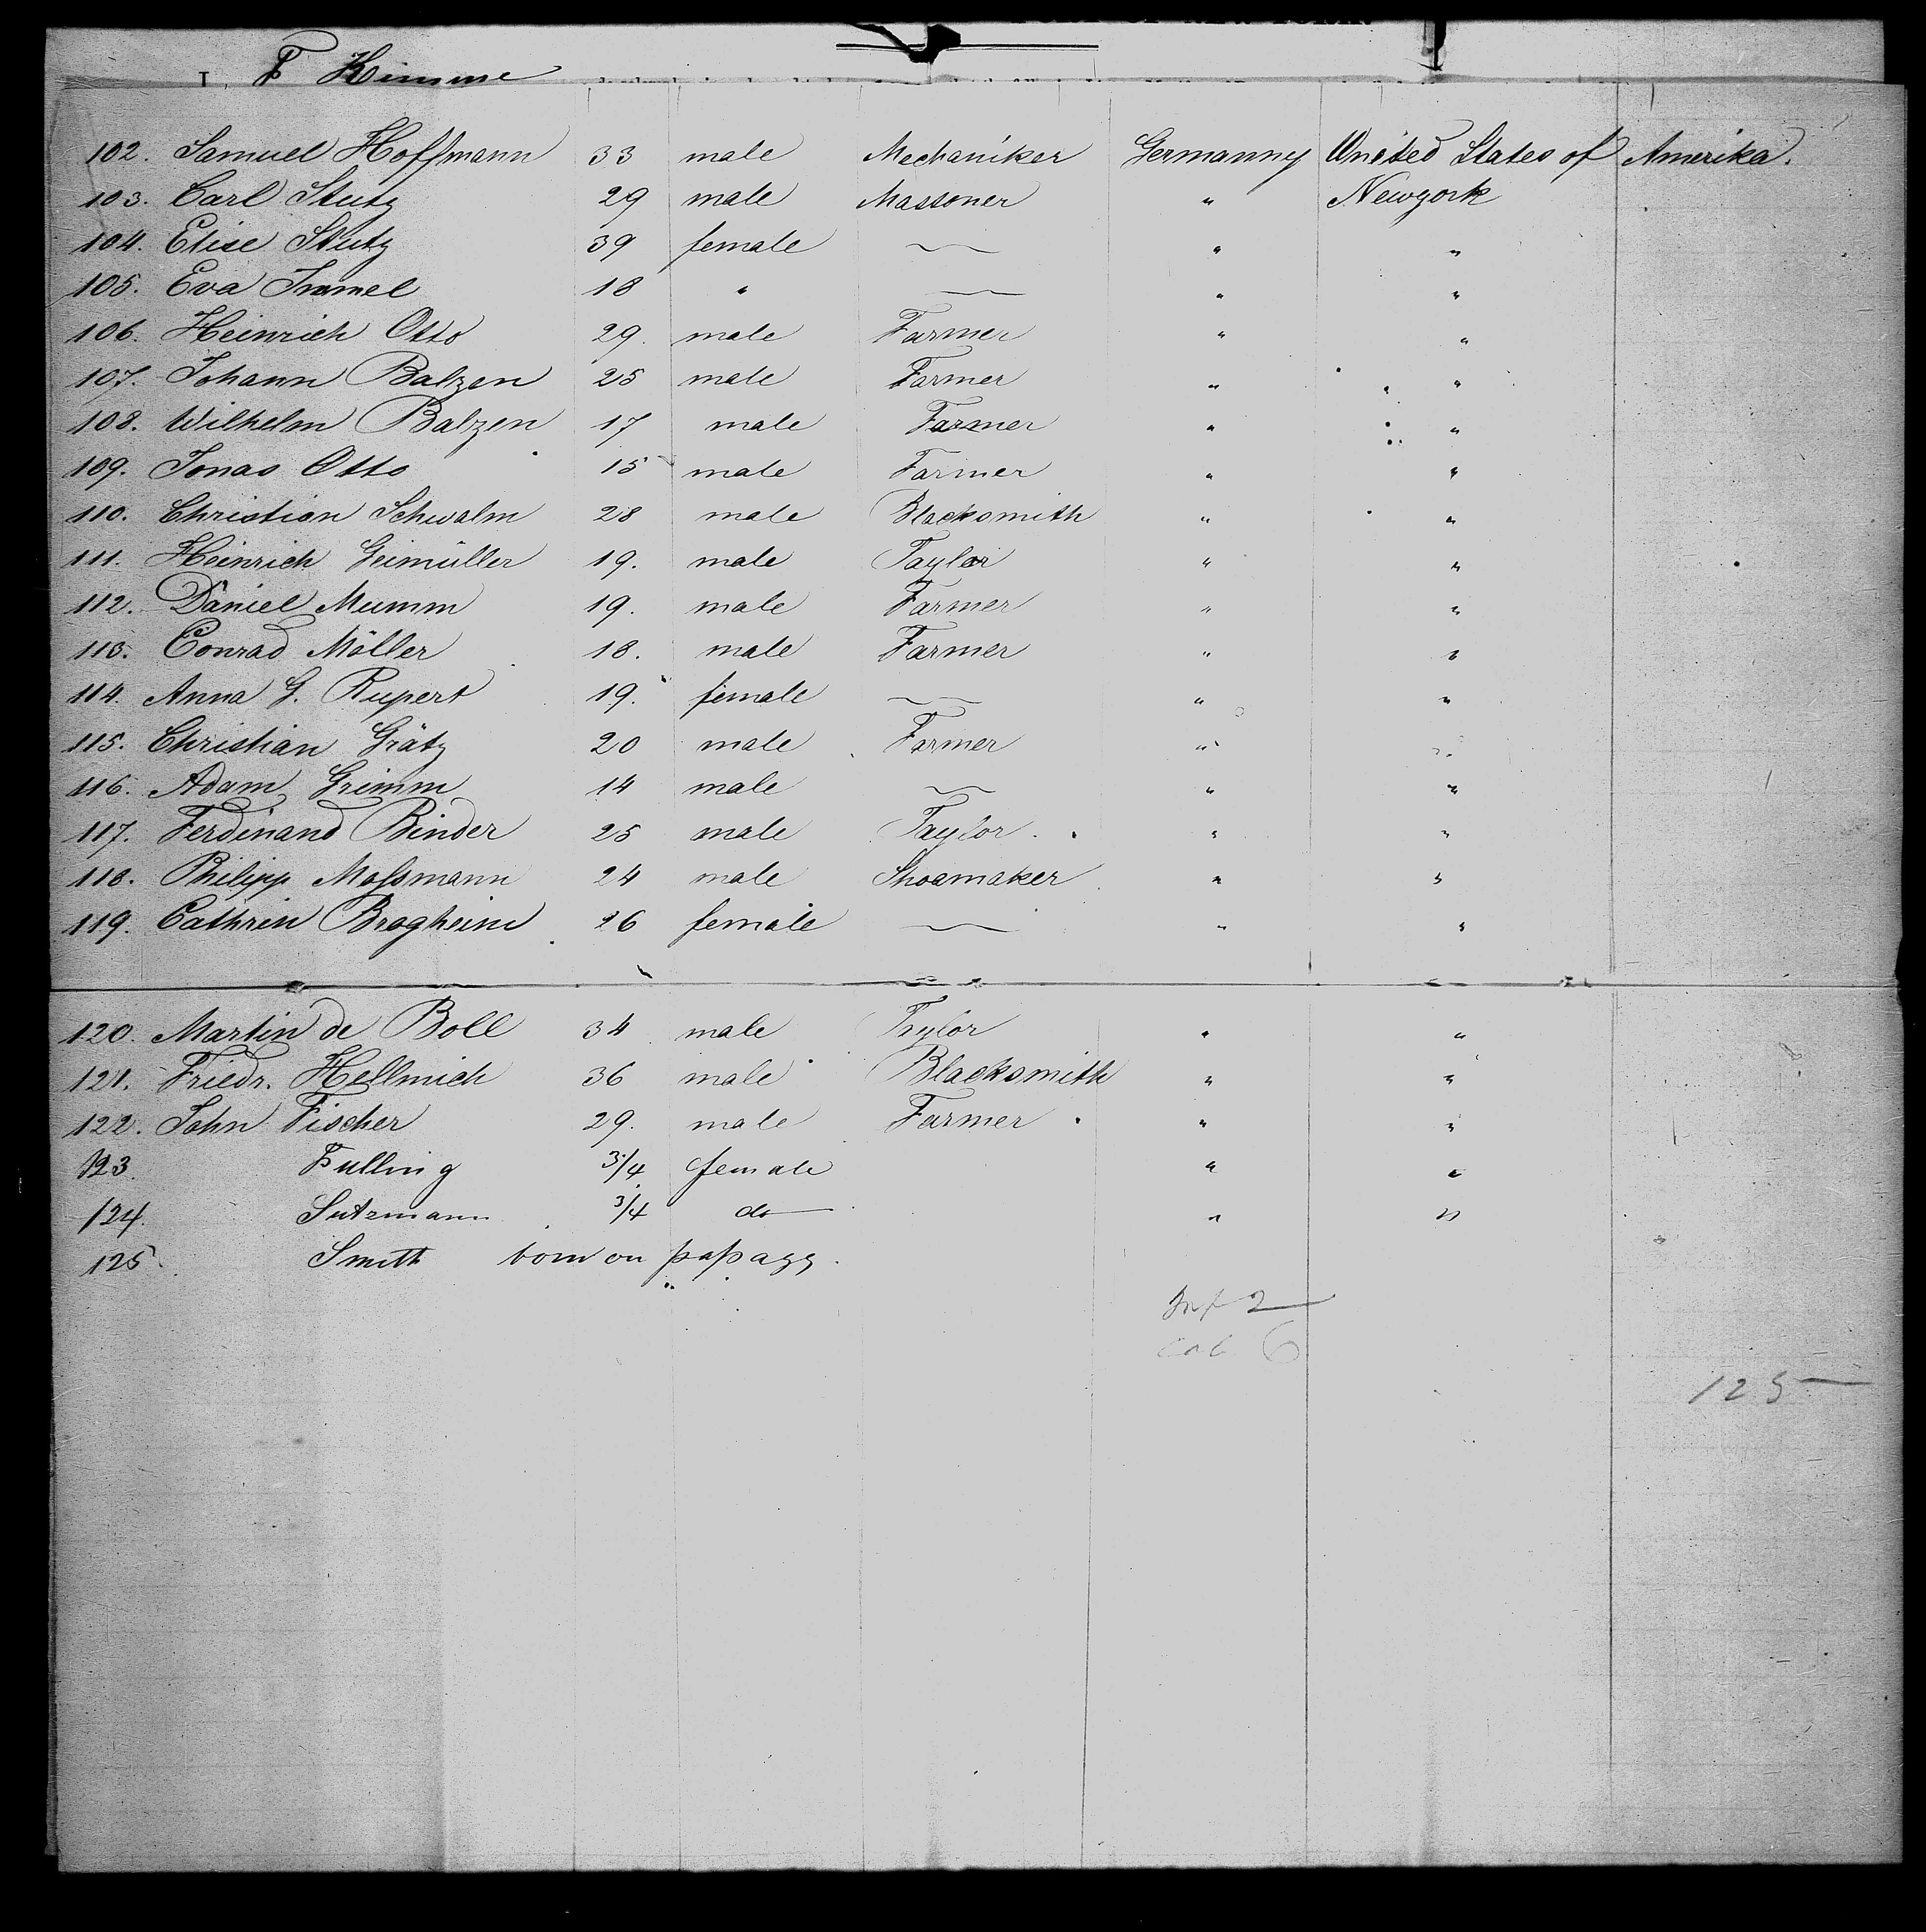 I, F Kimme
102. Samuel Hoffmann 33 male Mechaniker Germanny United States of Amerika.
103. Carl Stutz 29 male Massoner " Newyork
104. Elise Stutz 39 female — " "
105. Eva Immel 18 " — " "
106. Heinrich Otto 29. male Farmer " "
107. Johann Balzen 25 male Farmer " "
108. Wilhelm Balzen 17 male Farmer " "
109. Jonas Otto 15 male Farmer " "
110. Christian Schwalm 28 male Blacksmith " "
111. Heinrich Geimüller 19. male Taylor " "
112. Daniel Mumm 19. male Farmer " "
113. Conrad Möller 18. male Farmer " "
114. Anna G. Rupert 19. female — " "
115. Christian Grätz 20 male Farmer " "
116. Adam Grimm 14 male — " "
117. Ferdinand Binder 25 male Taylor " "
118. Philipp Moßmann 24 male Shoamaker " "
119. Cathrin Brogheim 26 female — " "
120. Martin de Boll 34 male Tylor " "
121. Friedr. Hellmich 36 male Blacksmith " "
122. John Fischer 29. male Farmer " "
123 Fulling 3/4 female " "
124. Sutzmann 3/4 do " "
125. Smith born on paßagg.
Inf 2
Cab 6
125